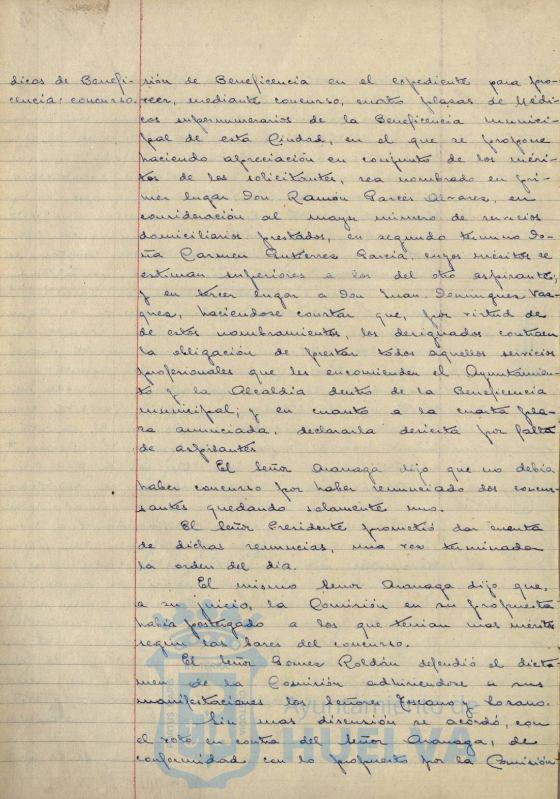 dicos de Benefi-
cencia: concurso.
sión de Beneficencia en el expediente para pro-
veer, mediante concurso, cuatro plazas de Médi-
cos supernumerarios de la Beneficencia munici-
pal de esta Ciudad, en el que se propone
haciendo apreciación en conjunto de los méri-
tos de los solicitantes, sea nombrado en pri-
mer lugar Don Ramón Garcés Alvarez, en
consideración al mayor número de servicios
domiciliarios prestados, en segundo termino Do-
ña Carmen Gutierrez Garcia, cuyos méritos se
estiman superiores a los del otro aspirante,
y en tercer lugar a Don Juan Dominguez Vaz-
quez, haciendose constar que, por virtud de
de estos nombramientos, los designados contraen
la obligación de prestar todos aquellos servicios
profesionales que les encomienden el Ayuntamien-
to y la Alcaldía dentro de la Beneficencia
municipal; y en cuanto a la cuarta pla-
za anunciada, declararla desierta por falta
de aspirantes.
El Señor Aranaga dijo que no debia
haber concurso por haber renunciado dos concur-
santes quedando solamente uno.
El Señor Presidente prometió dar cuenta
de dichas renuncias, una vez terminada
la orden del día.
El mismo Señor Aranaga dijo que,
a su juicio, la Comisión en su propuesta
había postergado a los que tenían mas méritos
según las bases del concurso.
El Señor Gomez Roldán defendió el dicta-
men de la Comisión adhiriendose a sus
manifestaciones los Señores Toscano y Lozano.
Sin mas discusión se acordó, con
el voto en contra del Señor Aranaga, de
conformidad con lo propuesto por la Comisión
Ayuntamiento de
HUELVA